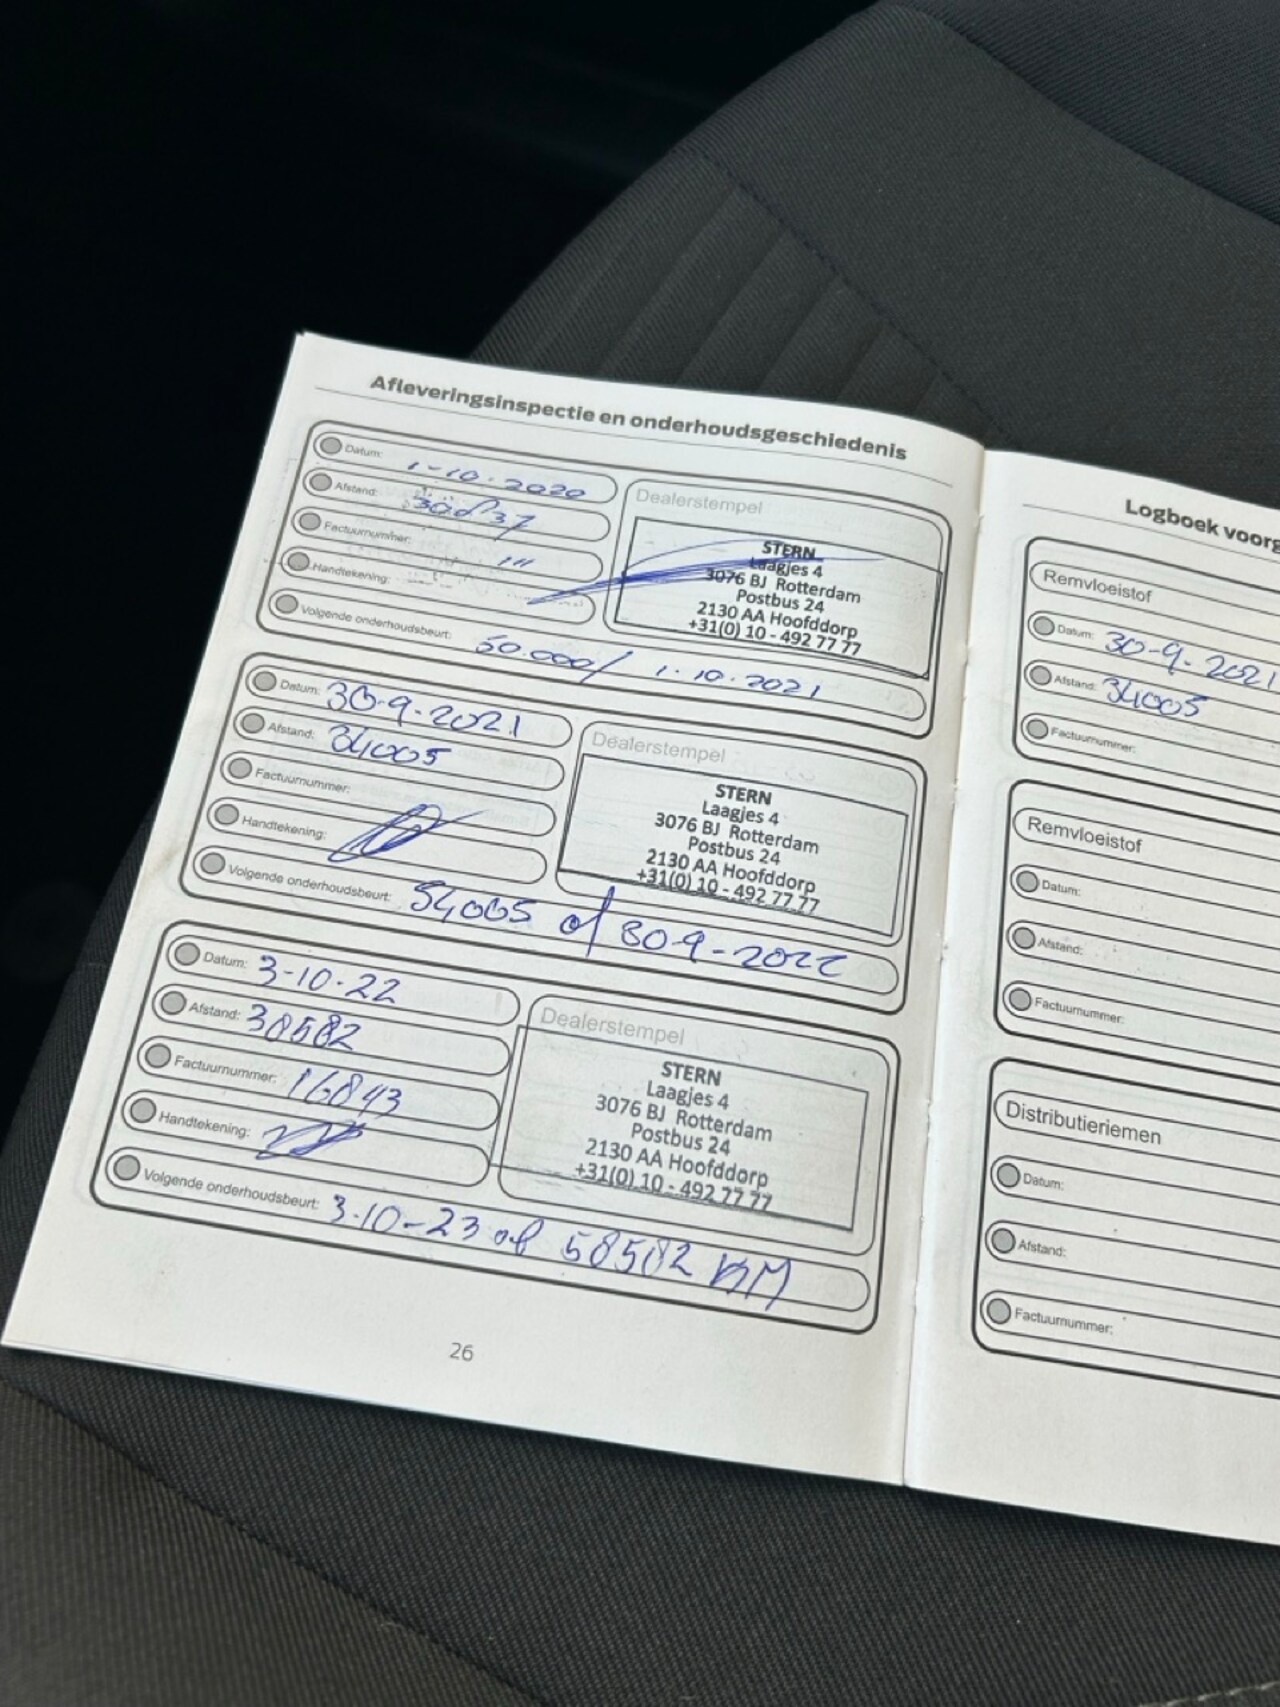 Afleveringsinspectie en onderhoudsgeschiedenis
Datum: 1-10-2020
Afstand:
Factuurnummer:
Handtekening:
Volgende onderhoudsbeurt: 50.000/ 1-10-2021
Dealerstempel
STERN
Laagjes 4
3076 BJ Rotterdam
Postbus 24
2130 AA Hoofddorp
+31(0) 10 - 492 77 77
Datum: 30-9-2021
Afstand: 34005
Factuurnummer:
Handtekening:
Volgende onderhoudsbeurt: 54005 of 30-9-2022
Dealerstempel
STERN
Laagjes 4
3076 BJ Rotterdam
Postbus 24
2130 AA Hoofddorp
+31(0) 10 - 492 77 77
Datum: 3-10-22
Afstand: 38582
Factuurnummer: 16843
Handtekening:
Volgende onderhoudsbeurt: 3-10-23 of 58582 KM
Dealerstempel
STERN
Laagjes 4
3076 BJ Rotterdam
Postbus 24
2130 AA Hoofddorp
+31(0) 10 - 492 77 77
26
Logboek voorg
Remvloeistof
Datum: 30-9-2021
Afstand: 34005
Factuurnummer:
Remvloeistof
Datum:
Afstand:
Factuurnummer:
Distributieriemen
Datum:
Afstand:
Factuurnummer: